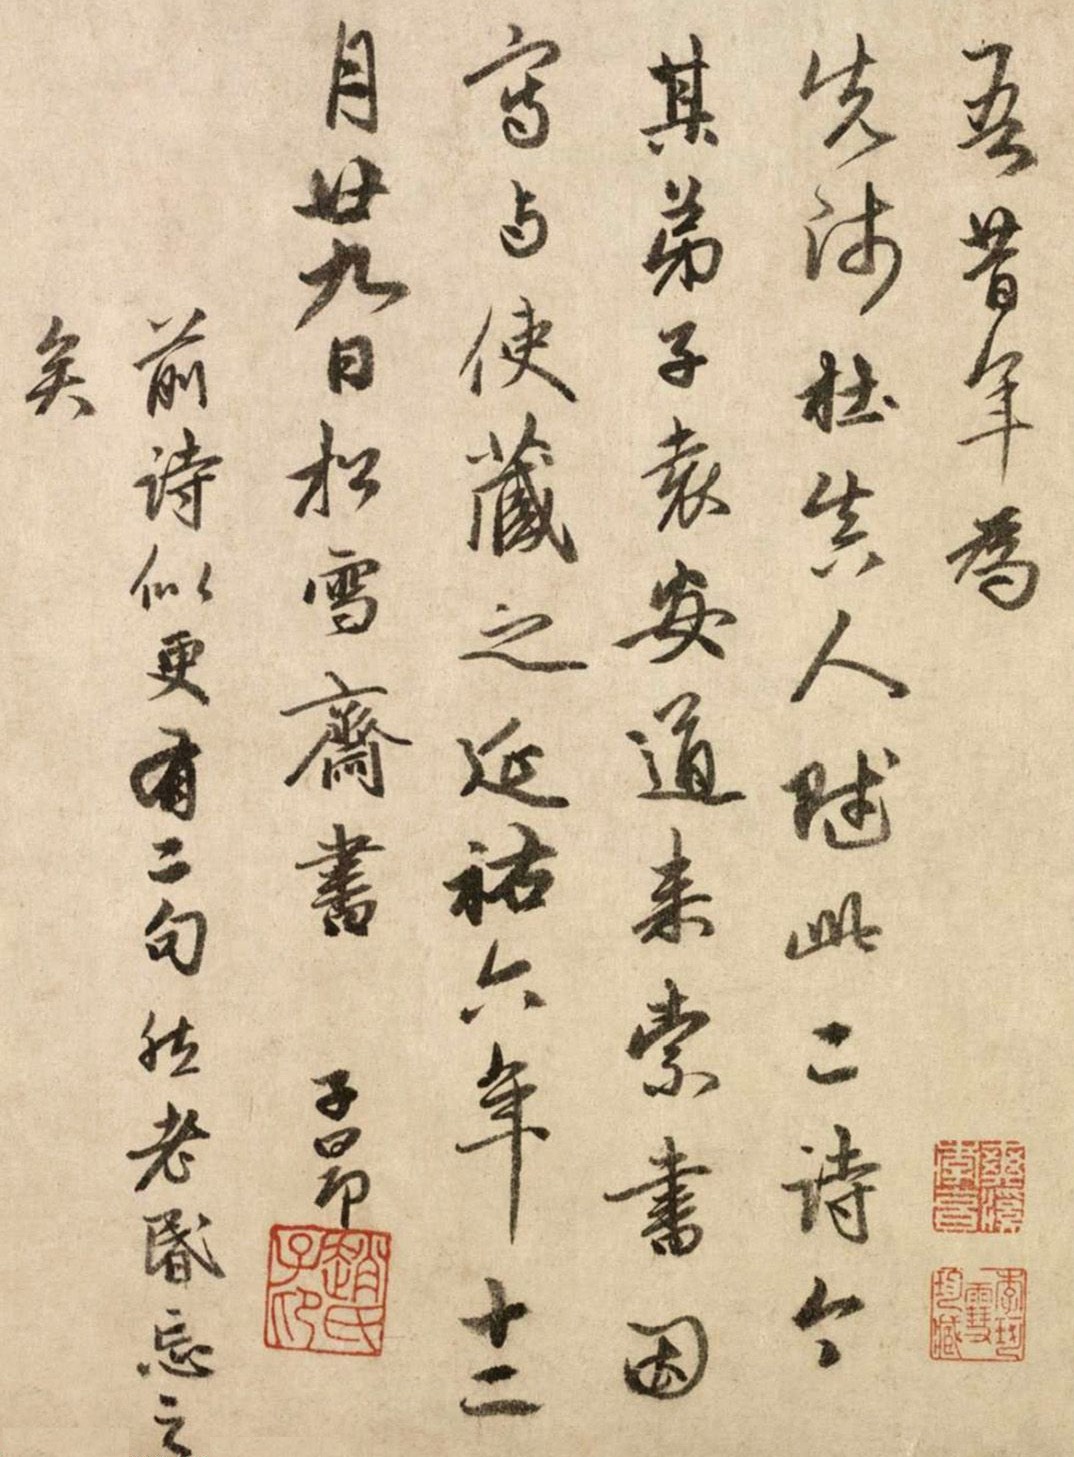 吾昔年爲
先師杜真人賦此二詩今
其弟子袁安道來索書因
寫与使藏之延祐六年十二
月廿九日松雪齋書 子昂
趙氏子印
前詩似更有二句然老昏忘之
矣